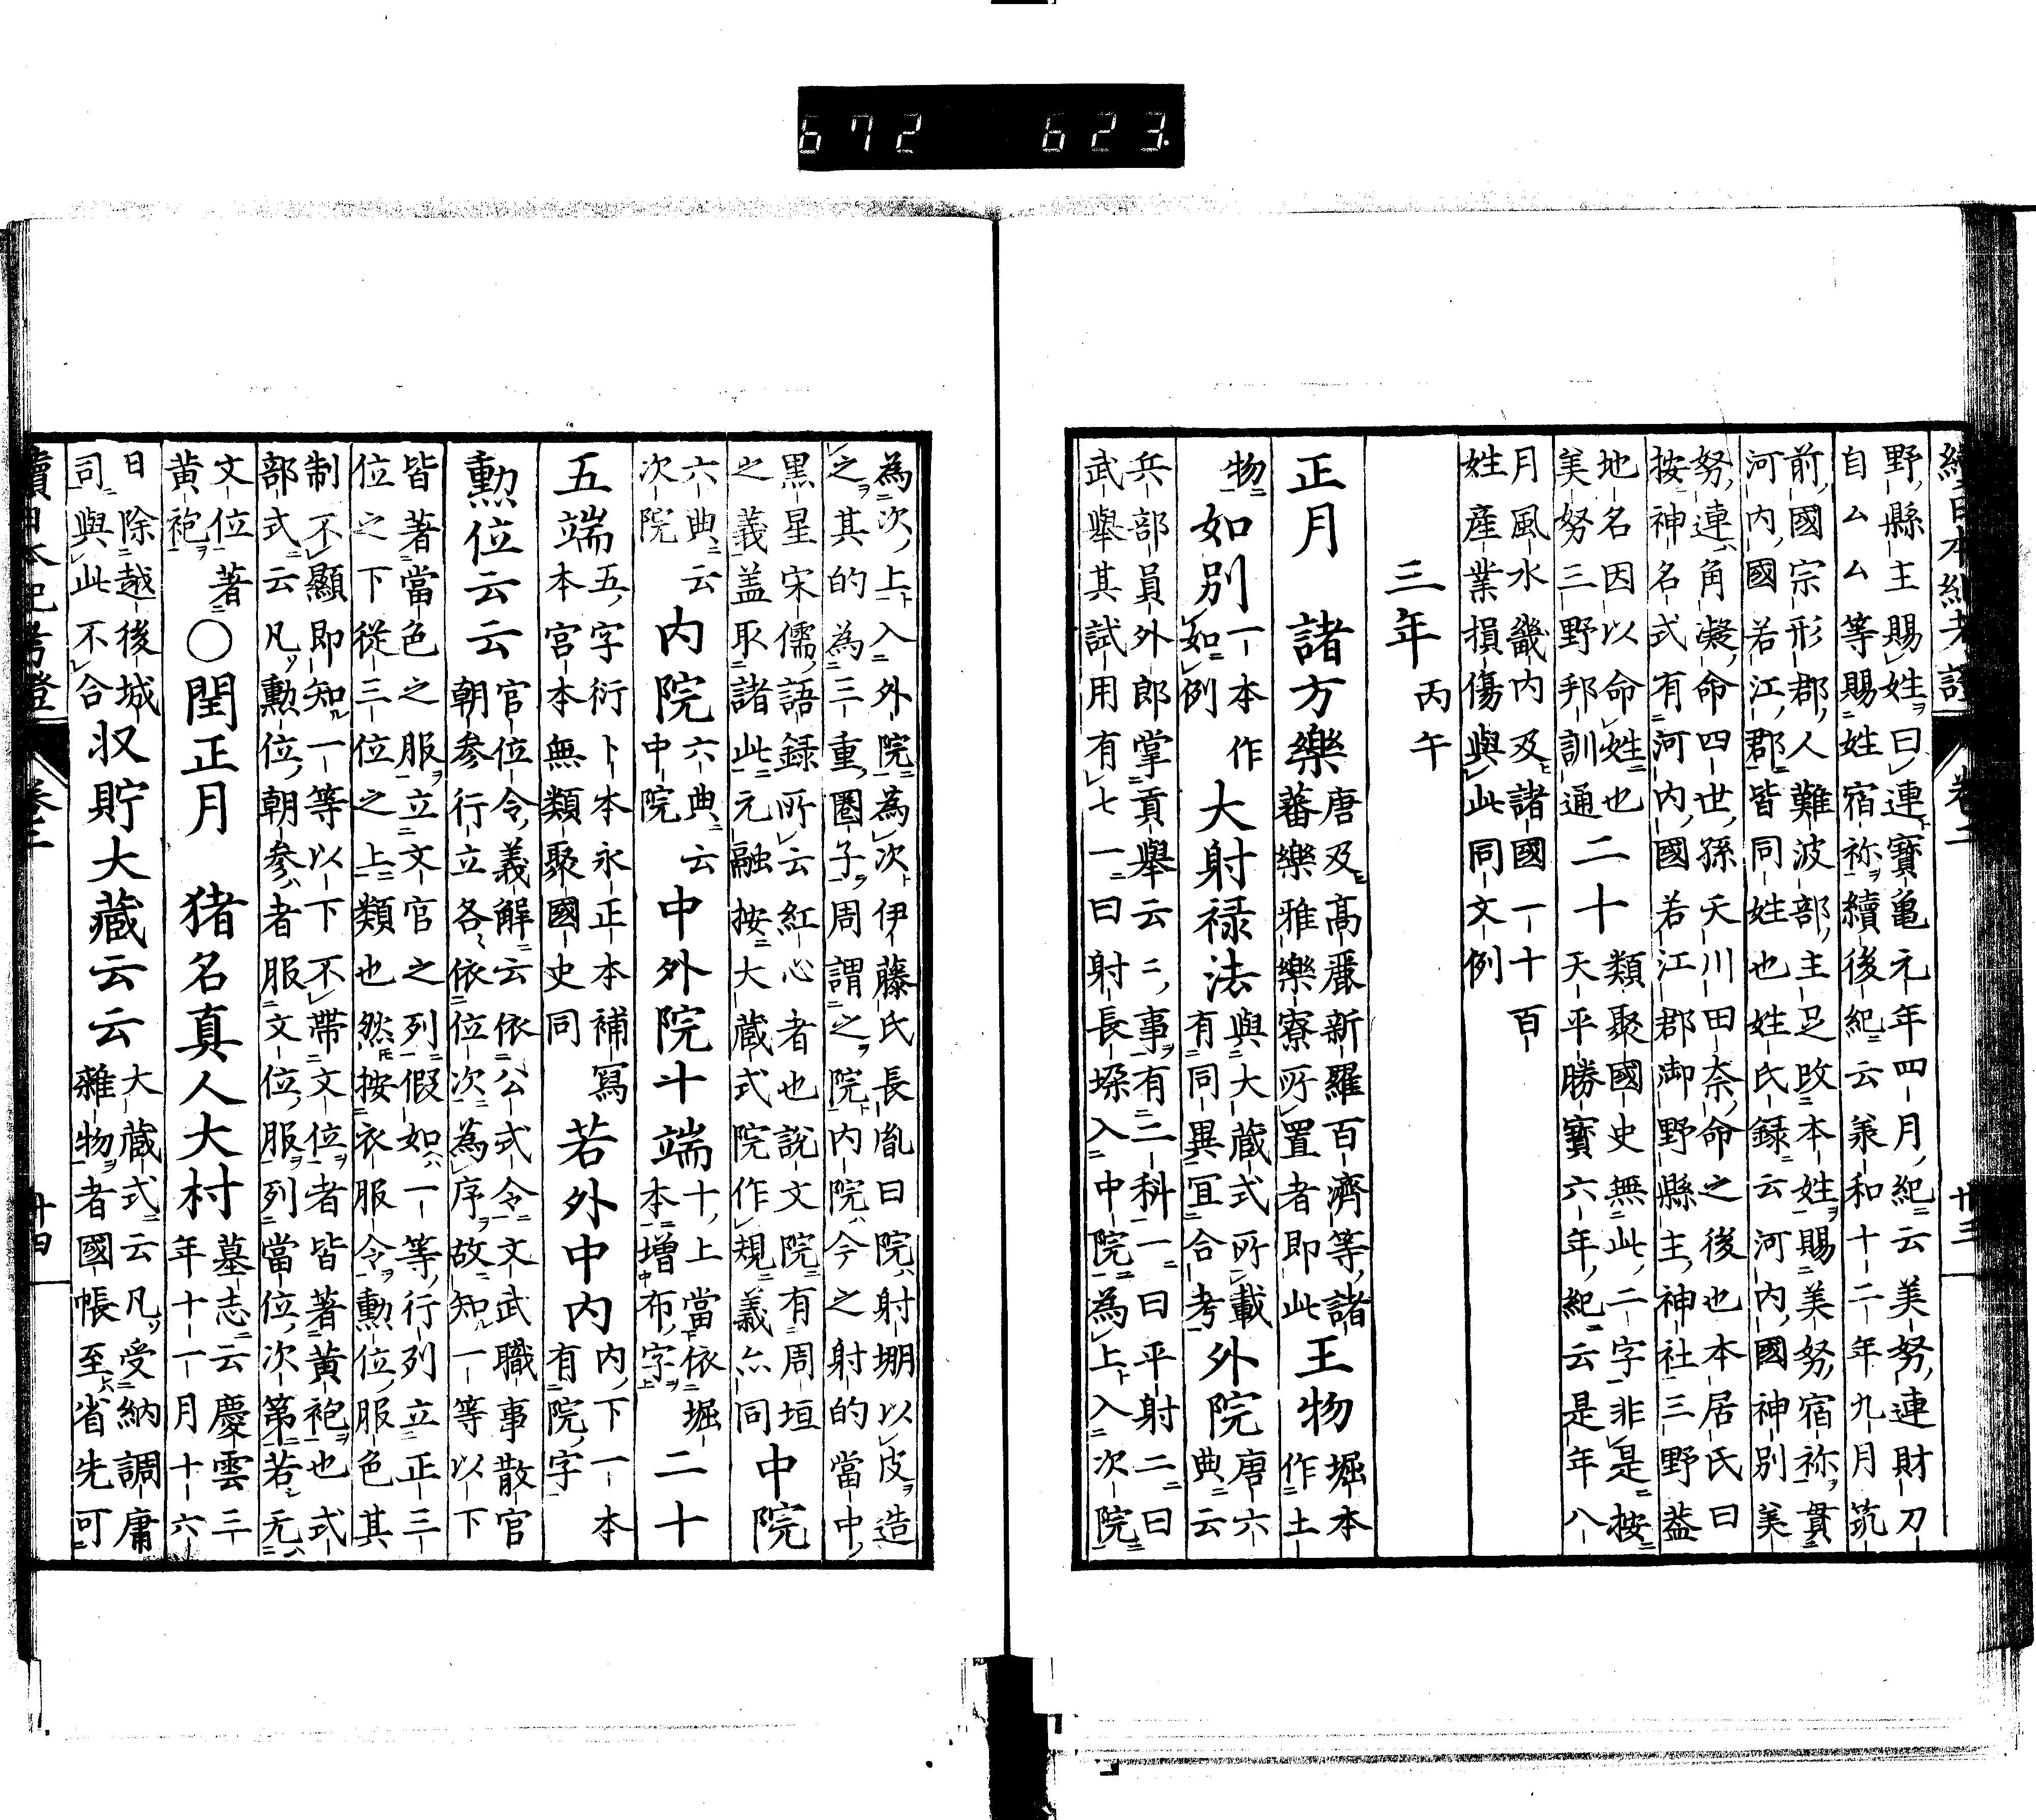 672 623
續日本紀考證 卷二 廿三
野縣主賜姓曰連寶龜元年四月紀云美努連財刀
自ムム等賜姓宿祢續後紀云兼和十二年九月筑
前國宗形郡人難波部主足改本姓賜美努宿祢貫
河内國若江郡皆同姓也姓氏録云河内國神別美
努連角凝命四世孫天川田奈命之後也本居氏曰
按神名式有河内國若江郡御野縣主神社三野益
地名因以命姓也
美努三野邦訓通
二十
類聚國史無此二字非是按
天平勝寶六年紀云是年八
月風水畿内及諸國一十百
姓産業損傷與此同文例
三年丙午
正月 諸方樂
唐及高麗新羅百濟等諸
蕃樂雅樂寮所置者即此
王物
堀本
作土
物
如別
一本作
如例
大射禄法
與大藏式所載
有同異宜合考
外院
唐六
典云
兵部員外郎掌貢舉云二事有二科一曰平射二曰
武舉其試用有七一曰射長垜入中院為上入次院
為次上入外院為次伊藤氏長胤曰院射堋以皮造
之其的為三重圈子周謂之院内院今之射的當中
黒星宋儒語録所云紅心者也説文院有周垣
之義盖取諸此元融按大蔵式院作規義亦同
中院
六典云
次院
内院
六典云
中院
中外院十端
十上當依堀
本增布字
二十
五端
五字衍卜本永正本補冩
本宮本無類聚國史同
若外中内
内下一本
有院字
勲位云云
官位令義解云依公式令文武職事散官
朝參行立各依位次為序故知一等以下
皆著當色之服立文官之列假如一等行列立正三
位之下從三位之上類也然按衣服令勲位服色其
制不顯即知一等以下不帶文位者皆著黄袍也式
部式云凡勲位朝參者服文位服列當位次第若无
文位著
黄袍
○閏正月 猪名真人大村
墓志云慶雲三
年十一月十六
日除越後城
司與此不合
収貯大藏云云
大蔵式云凡受納調庸
雜物者國帳至省先可
續日本紀考證 卷二 廿四